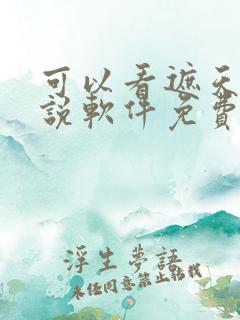 可以看遮天
說軟件免費
浮生夢語
未经同意禁止转载